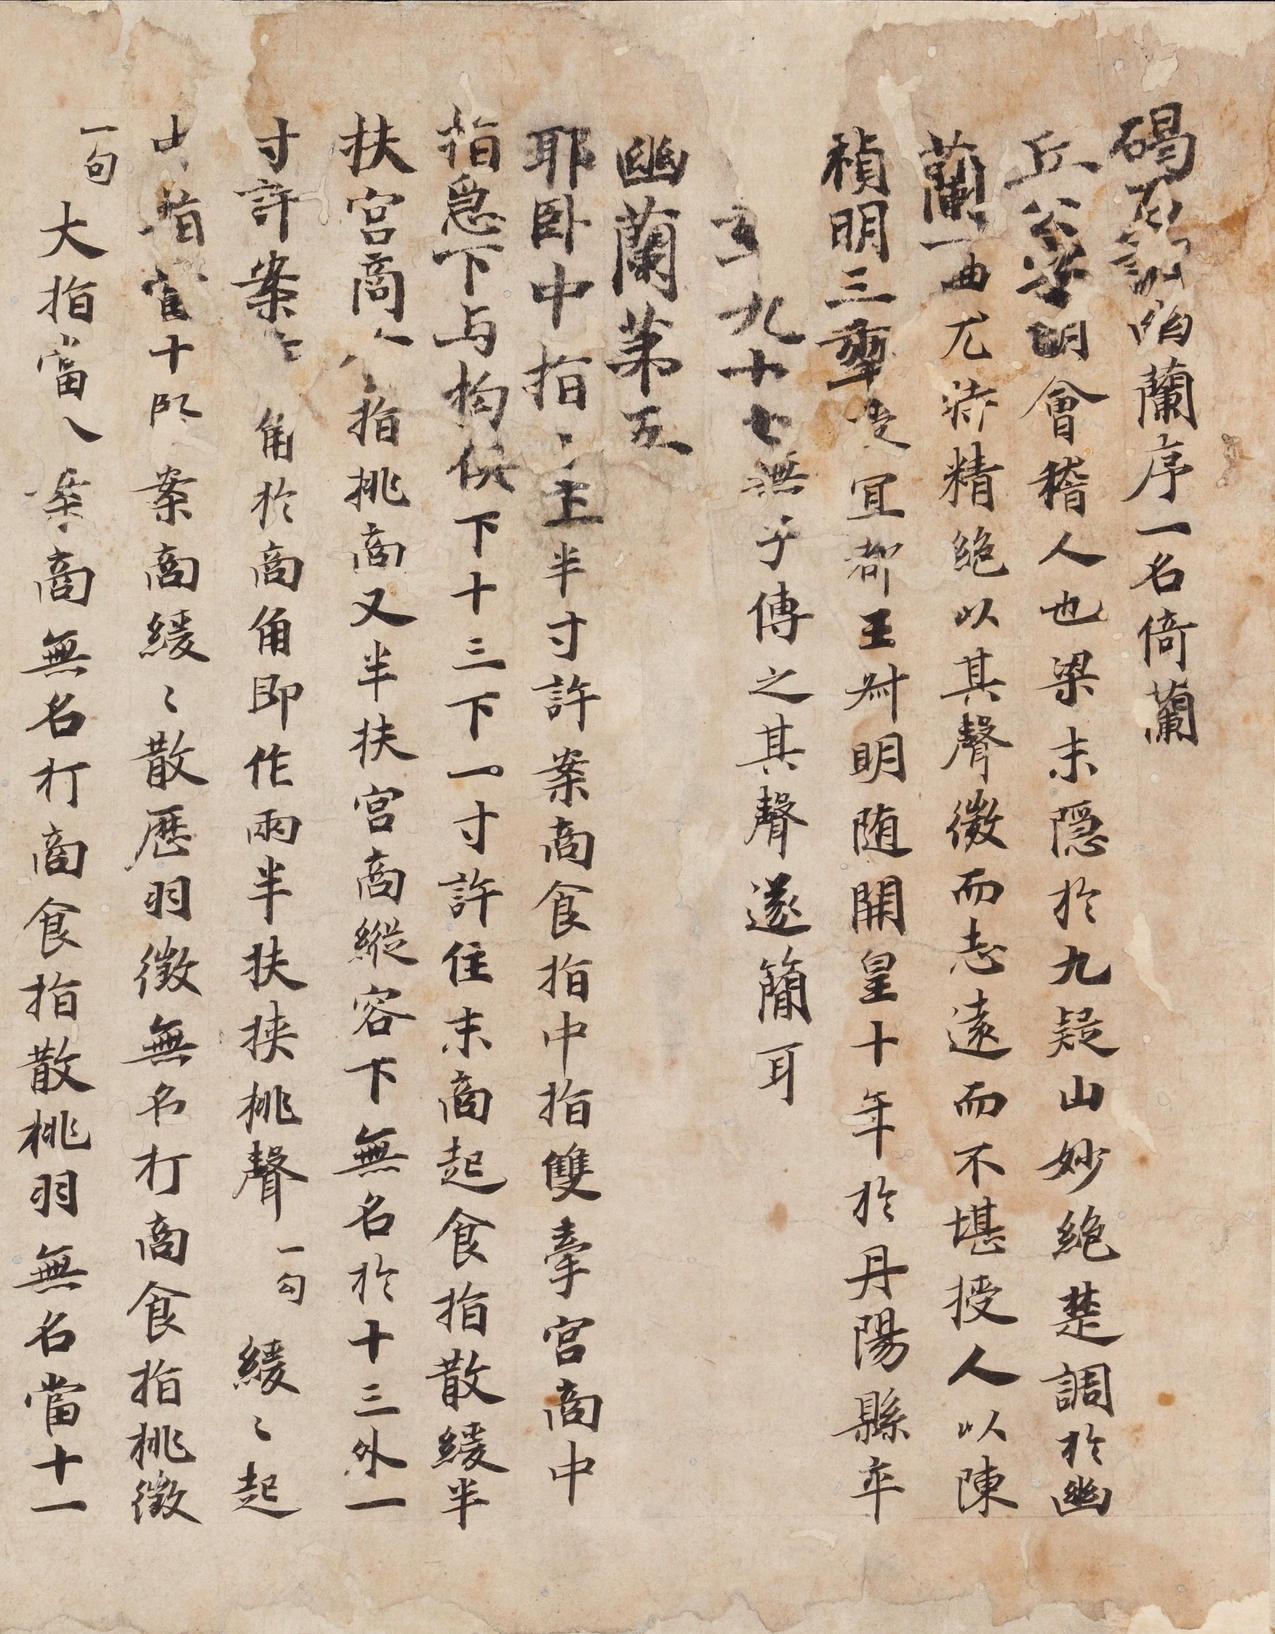 碣石調幽蘭序一名倚蘭
丘公字明會稽人也梁末隱於九疑山妙絶楚調於幽
蘭一曲尤特精絶以其聲微而志遠而不堪授人以陳
禎明三年授宜都王叔明随開皇十年於丹陽縣卒
九十七無子傳之其聲遂簡耳
幽蘭第五
耶卧中指上半寸許案商食指中指雙牽宮商中
指急下与拘俱下十三下一寸許住末商起食指散緩半
扶宮商食指挑商又半扶宮商縱容下無名於十三外一
寸許案商角於商角即作兩半扶挾挑聲一句緩〻起
指當十案商緩〻散歷羽徵無名打商食指挑徵
一句大指當八案商無名打商食指散挑羽無名當十一